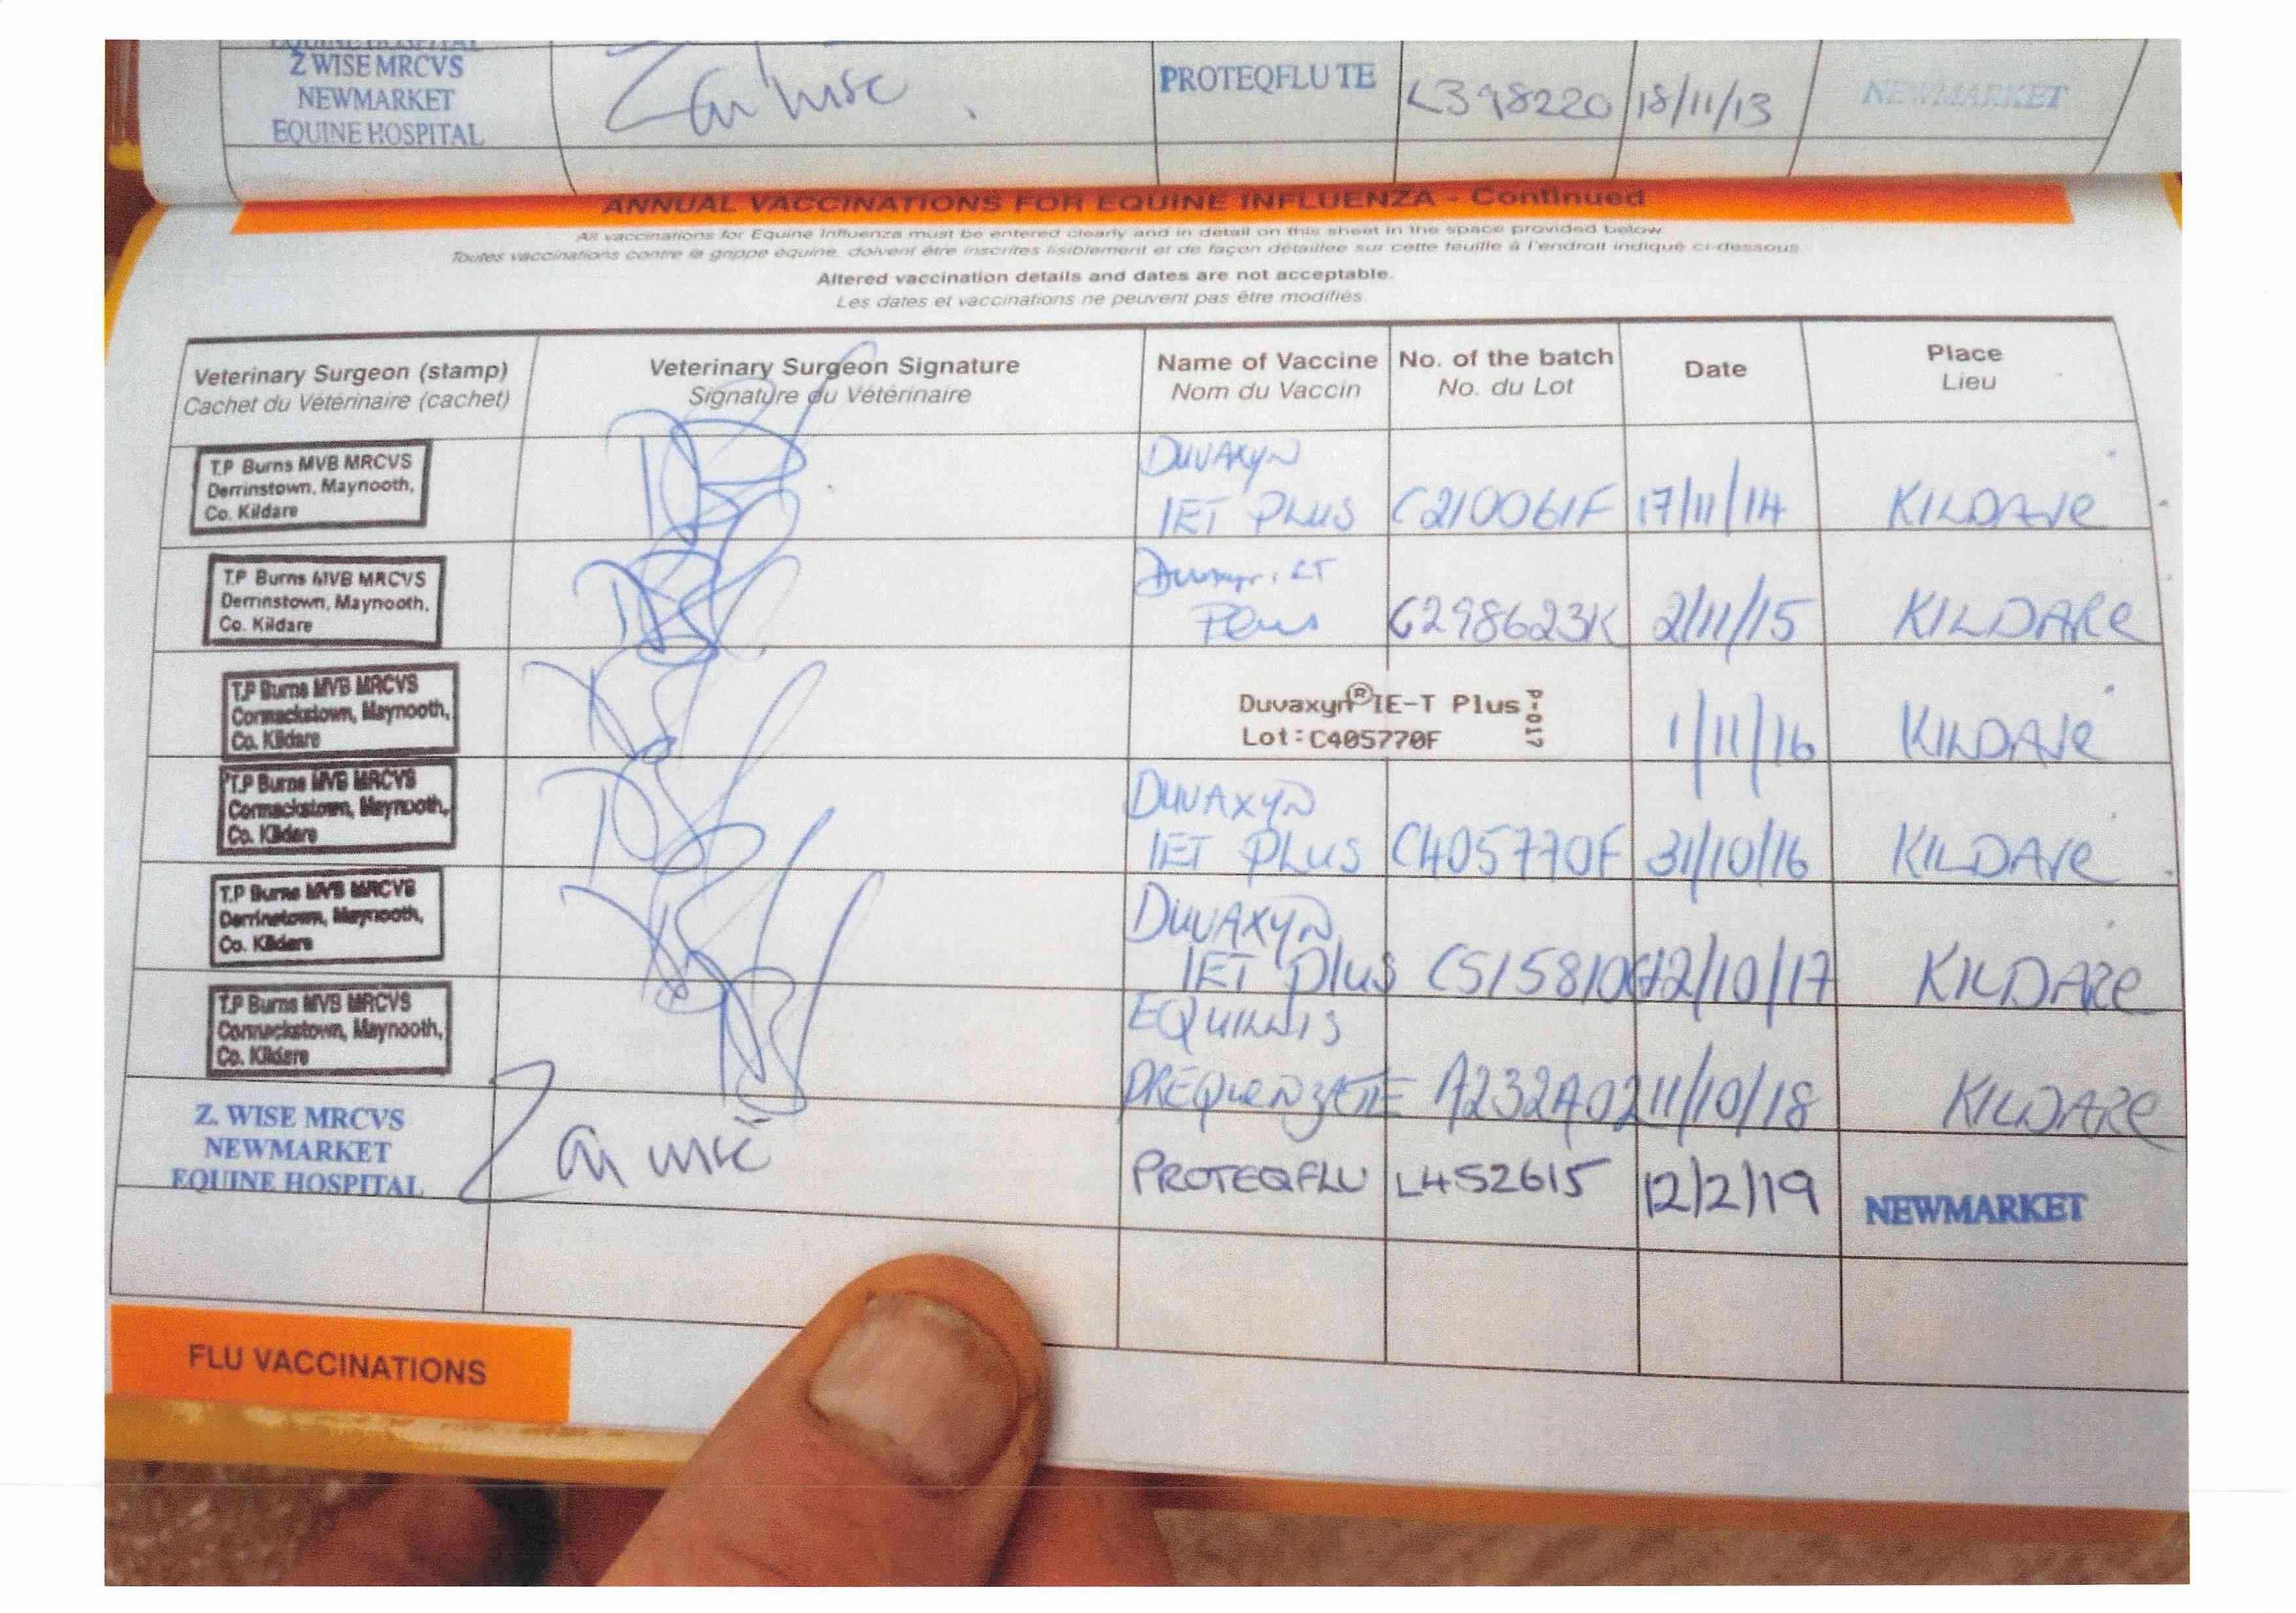 Z WISE MRCVS
NEWMARKET
EQUINE HOSPITAL
Zoe Wise
PROTEQFLU TE
L398220
18/11/13
NEWMARKET
ANNUAL VACCINATIONS FOR EQUINE INFLUENZA - Continued
All vaccinations for Equine Influenza must be entered clearly and in detail on this sheet in the space provided below.
Toutes vaccinations contre la grippe équine, doivent être inscrites lisiblement et de façon détaillée sur cette feuille à l'endroit indiqué ci-dessous
Altered vaccination details and dates are not acceptable.
Les dates et vaccinations ne peuvent pas être modifiés
Veterinary Surgeon (stamp)
Cachet du Vétérinaire (cachet)
Veterinary Surgeon Signature
Signature du Vétérinaire
Name of Vaccine
Nom du Vaccin
No. of the batch
No. du Lot
Date
Place
Lieu
T.P Burns MVB MRCVS
Derrinstown, Maynooth,
Co. Kildare
DUVAXYN
IET PLUS
C210061F
17/11/14
KILDARE
T.P Burns MVB MRCVS
Derrinstown, Maynooth,
Co. Kildare
Plus
C298623K
2/11/15
KILDARE
T.P Burns MVB MRCVS
Cormackstown, Maynooth,
Co. Kildare
Duvaxyn® IE-T Plus
Lot:C405770F
P-017
1/11/16
KILDARE
T.P Burns MVB MRCVS
Cormackstown, Maynooth,
Co. Kildare
DUVAXYN
IET PLUS
C405770F
31/10/16
KILDARE
T.P Burns MVB MRCVS
Derrinstown, Maynooth,
Co. Kildare
DUVAXYN
IET Plus
12/10/17
KILDARE
T.P Burns MVB MRCVS
Cormackstown, Maynooth,
Co. Kildare
EQUILIS
PREQUENZA TE
A232A02
11/10/18
KILDARE
Z. WISE MRCVS
NEWMARKET
EQUINE HOSPITAL
PROTEQFLU
L452615
12/2/19
NEWMARKET
FLU VACCINATIONS